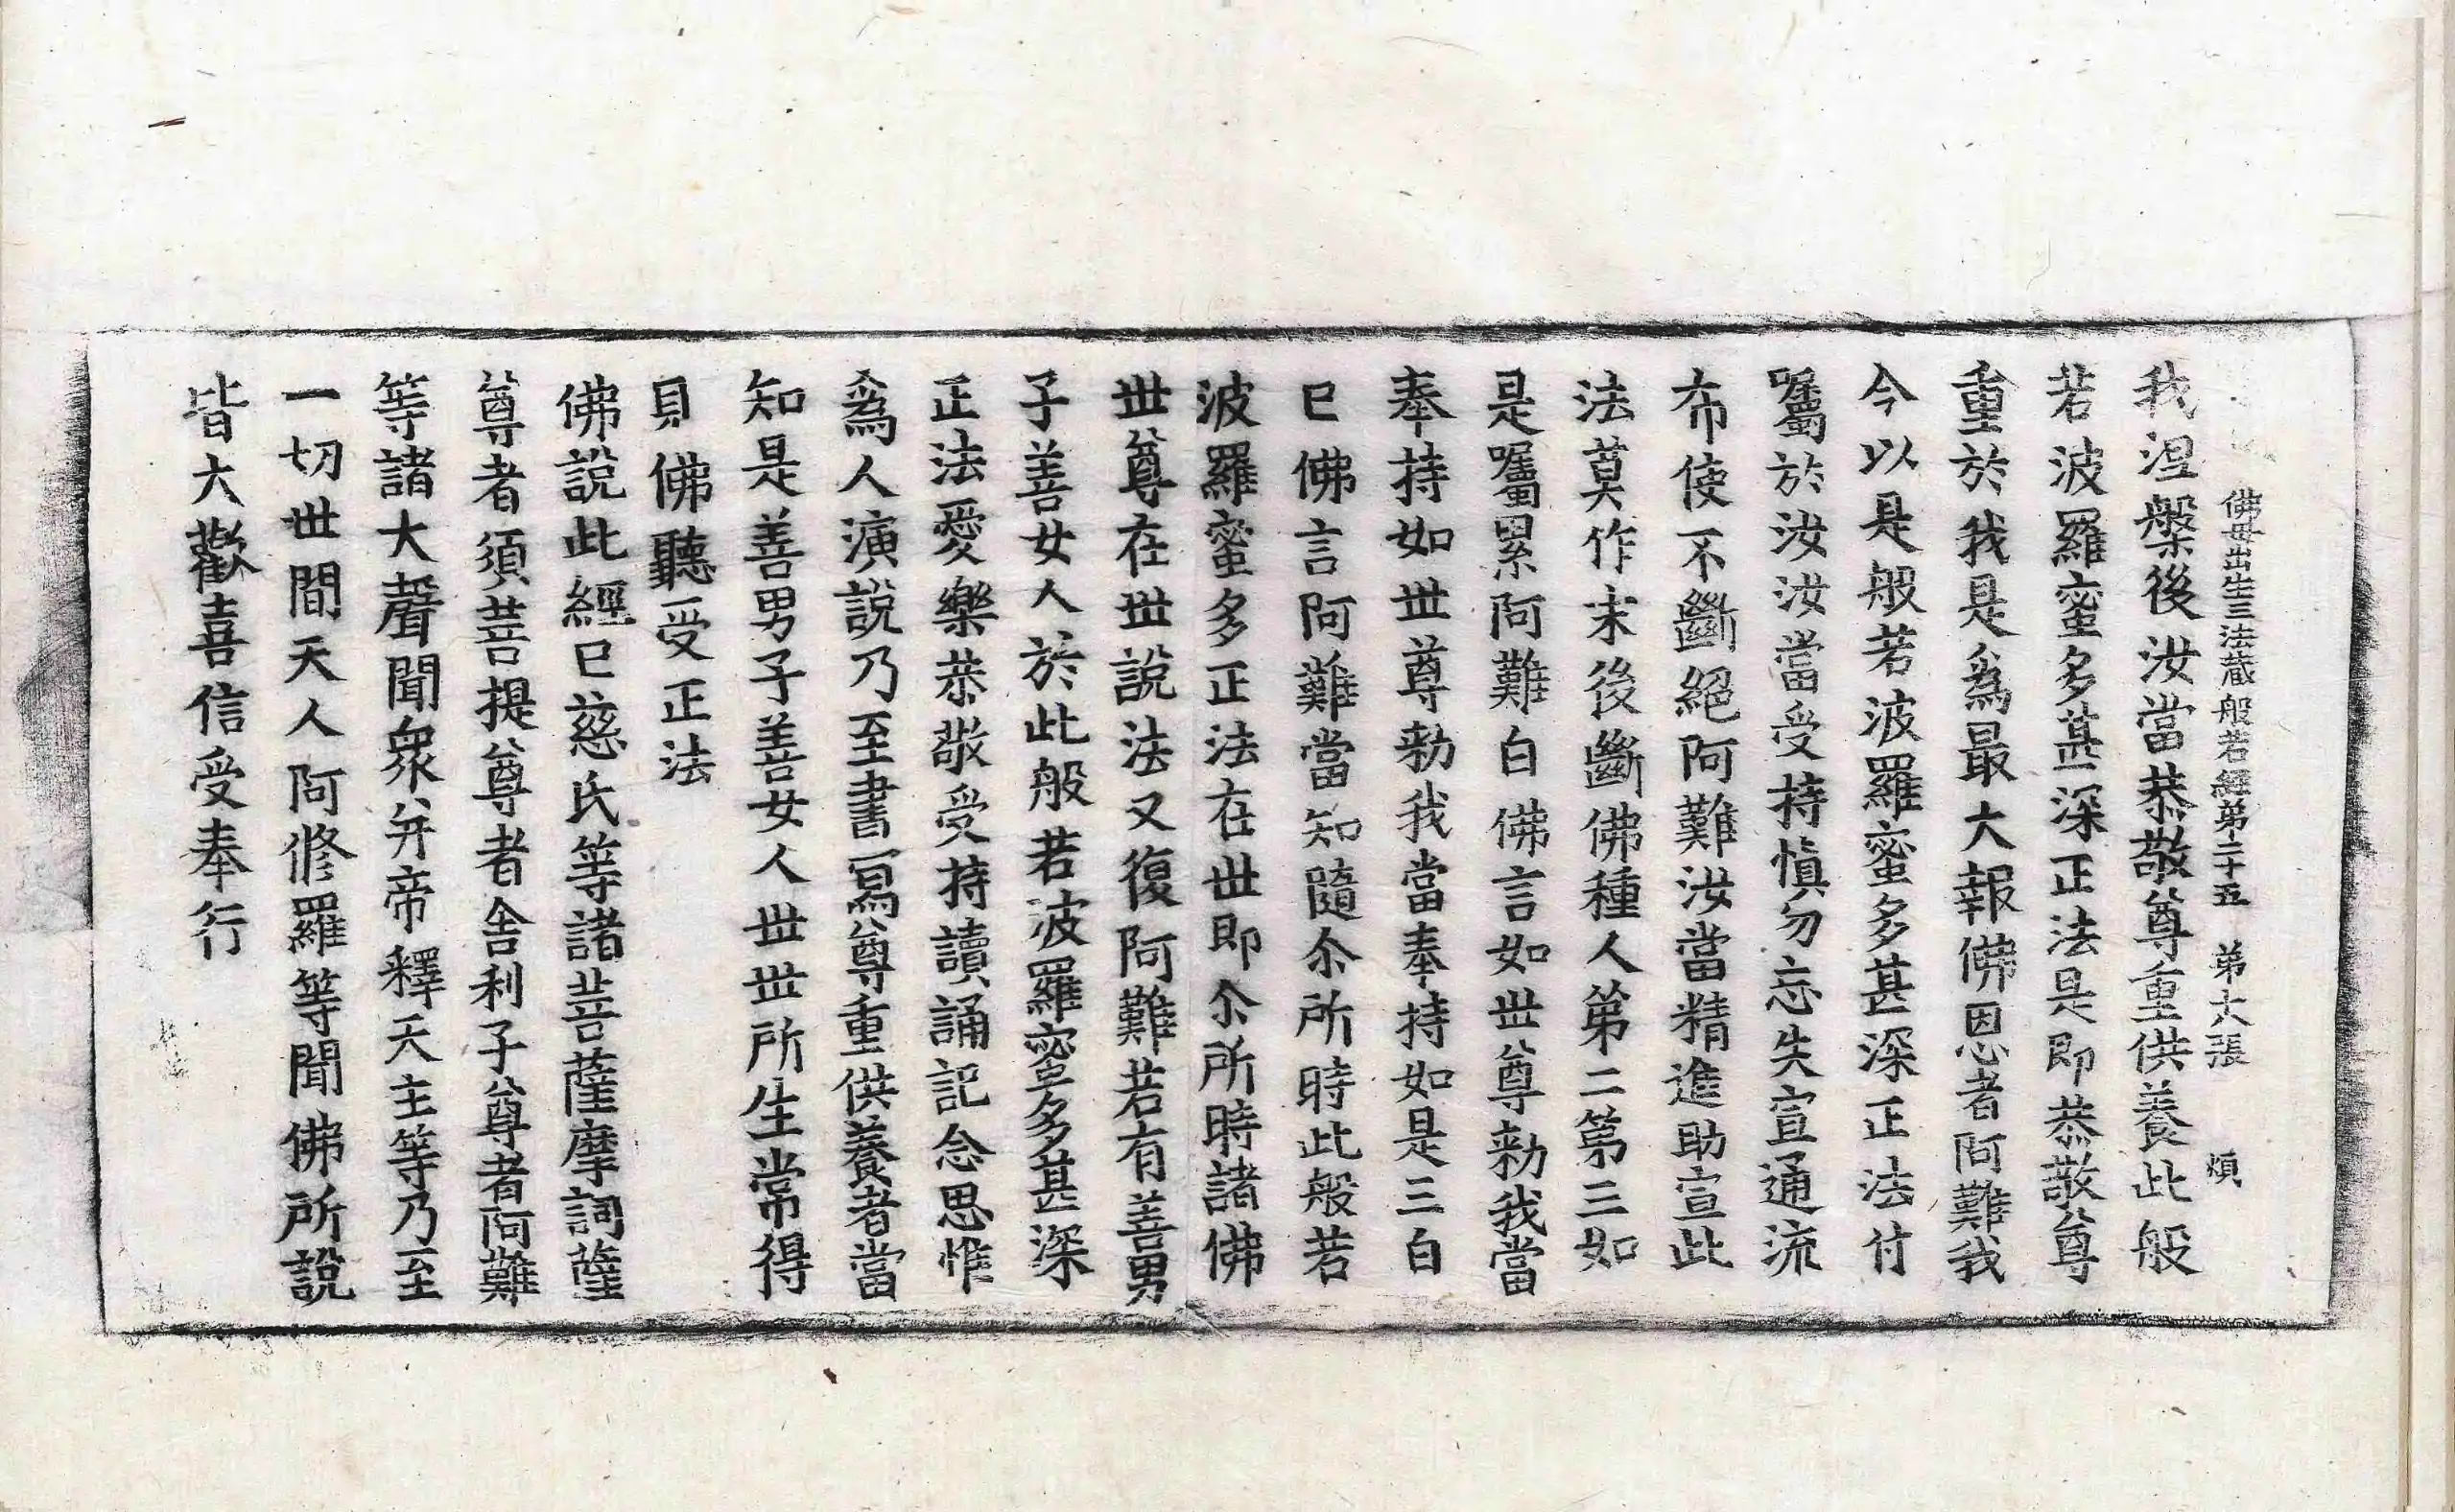 佛母出生三法蔵般若經第二十五　第六張　煩
我涅槃後汝當恭敬尊重供養此般
若波羅蜜多甚深正法是即恭敬尊
重於我是為最大報佛恩者阿難我
今以是般若波羅蜜多甚深正法付
囑於汝汝當受持慎勿忘失宣通流
布使不斷絕阿難汝當精進助宣此
法莫作末後斷佛種人第二第三如
是囑累阿難白佛言如世尊勑我當
奉持如世尊勑我當奉持如是三白
已佛言阿難當知隨尒所時此般若
波羅蜜多正法在世即尒所時諸佛
世尊在世說法又復阿難若有善男
子善女人於此般若波羅蜜多甚深
正法愛樂恭敬受持讀誦記念思惟
為人演說乃至書寫尊重供養者當
知是善男子善女人世世所生常得
見佛聽受正法
佛說此經已慈氏等諸菩薩摩訶薩
尊者須菩提尊者舍利子尊者阿難
等諸大聲聞衆并帝釋天主等乃至
一切世間天人阿脩羅等聞佛所說
皆大歡喜信受奉行